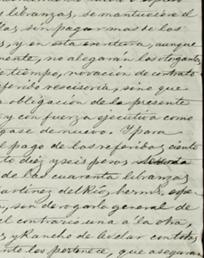 libranzas, se mantuviere d
sin pagar mas de los
y en esta escritura, aunque
mente, no alegarán los otorgantes
tiempo, novacion de contrato
rescisoria, sino que
obligacion de la presente
y con fuerza ejecutiva como
gase de nuevo. Y para
pago de las referidas ciento
te diez y seis pesos
de las cuarenta libranzas
Martinez del Rio, herms, espe
sin derogar la general de
el contrario una a la otra,
y Rancho de
pertenece, que aseguran